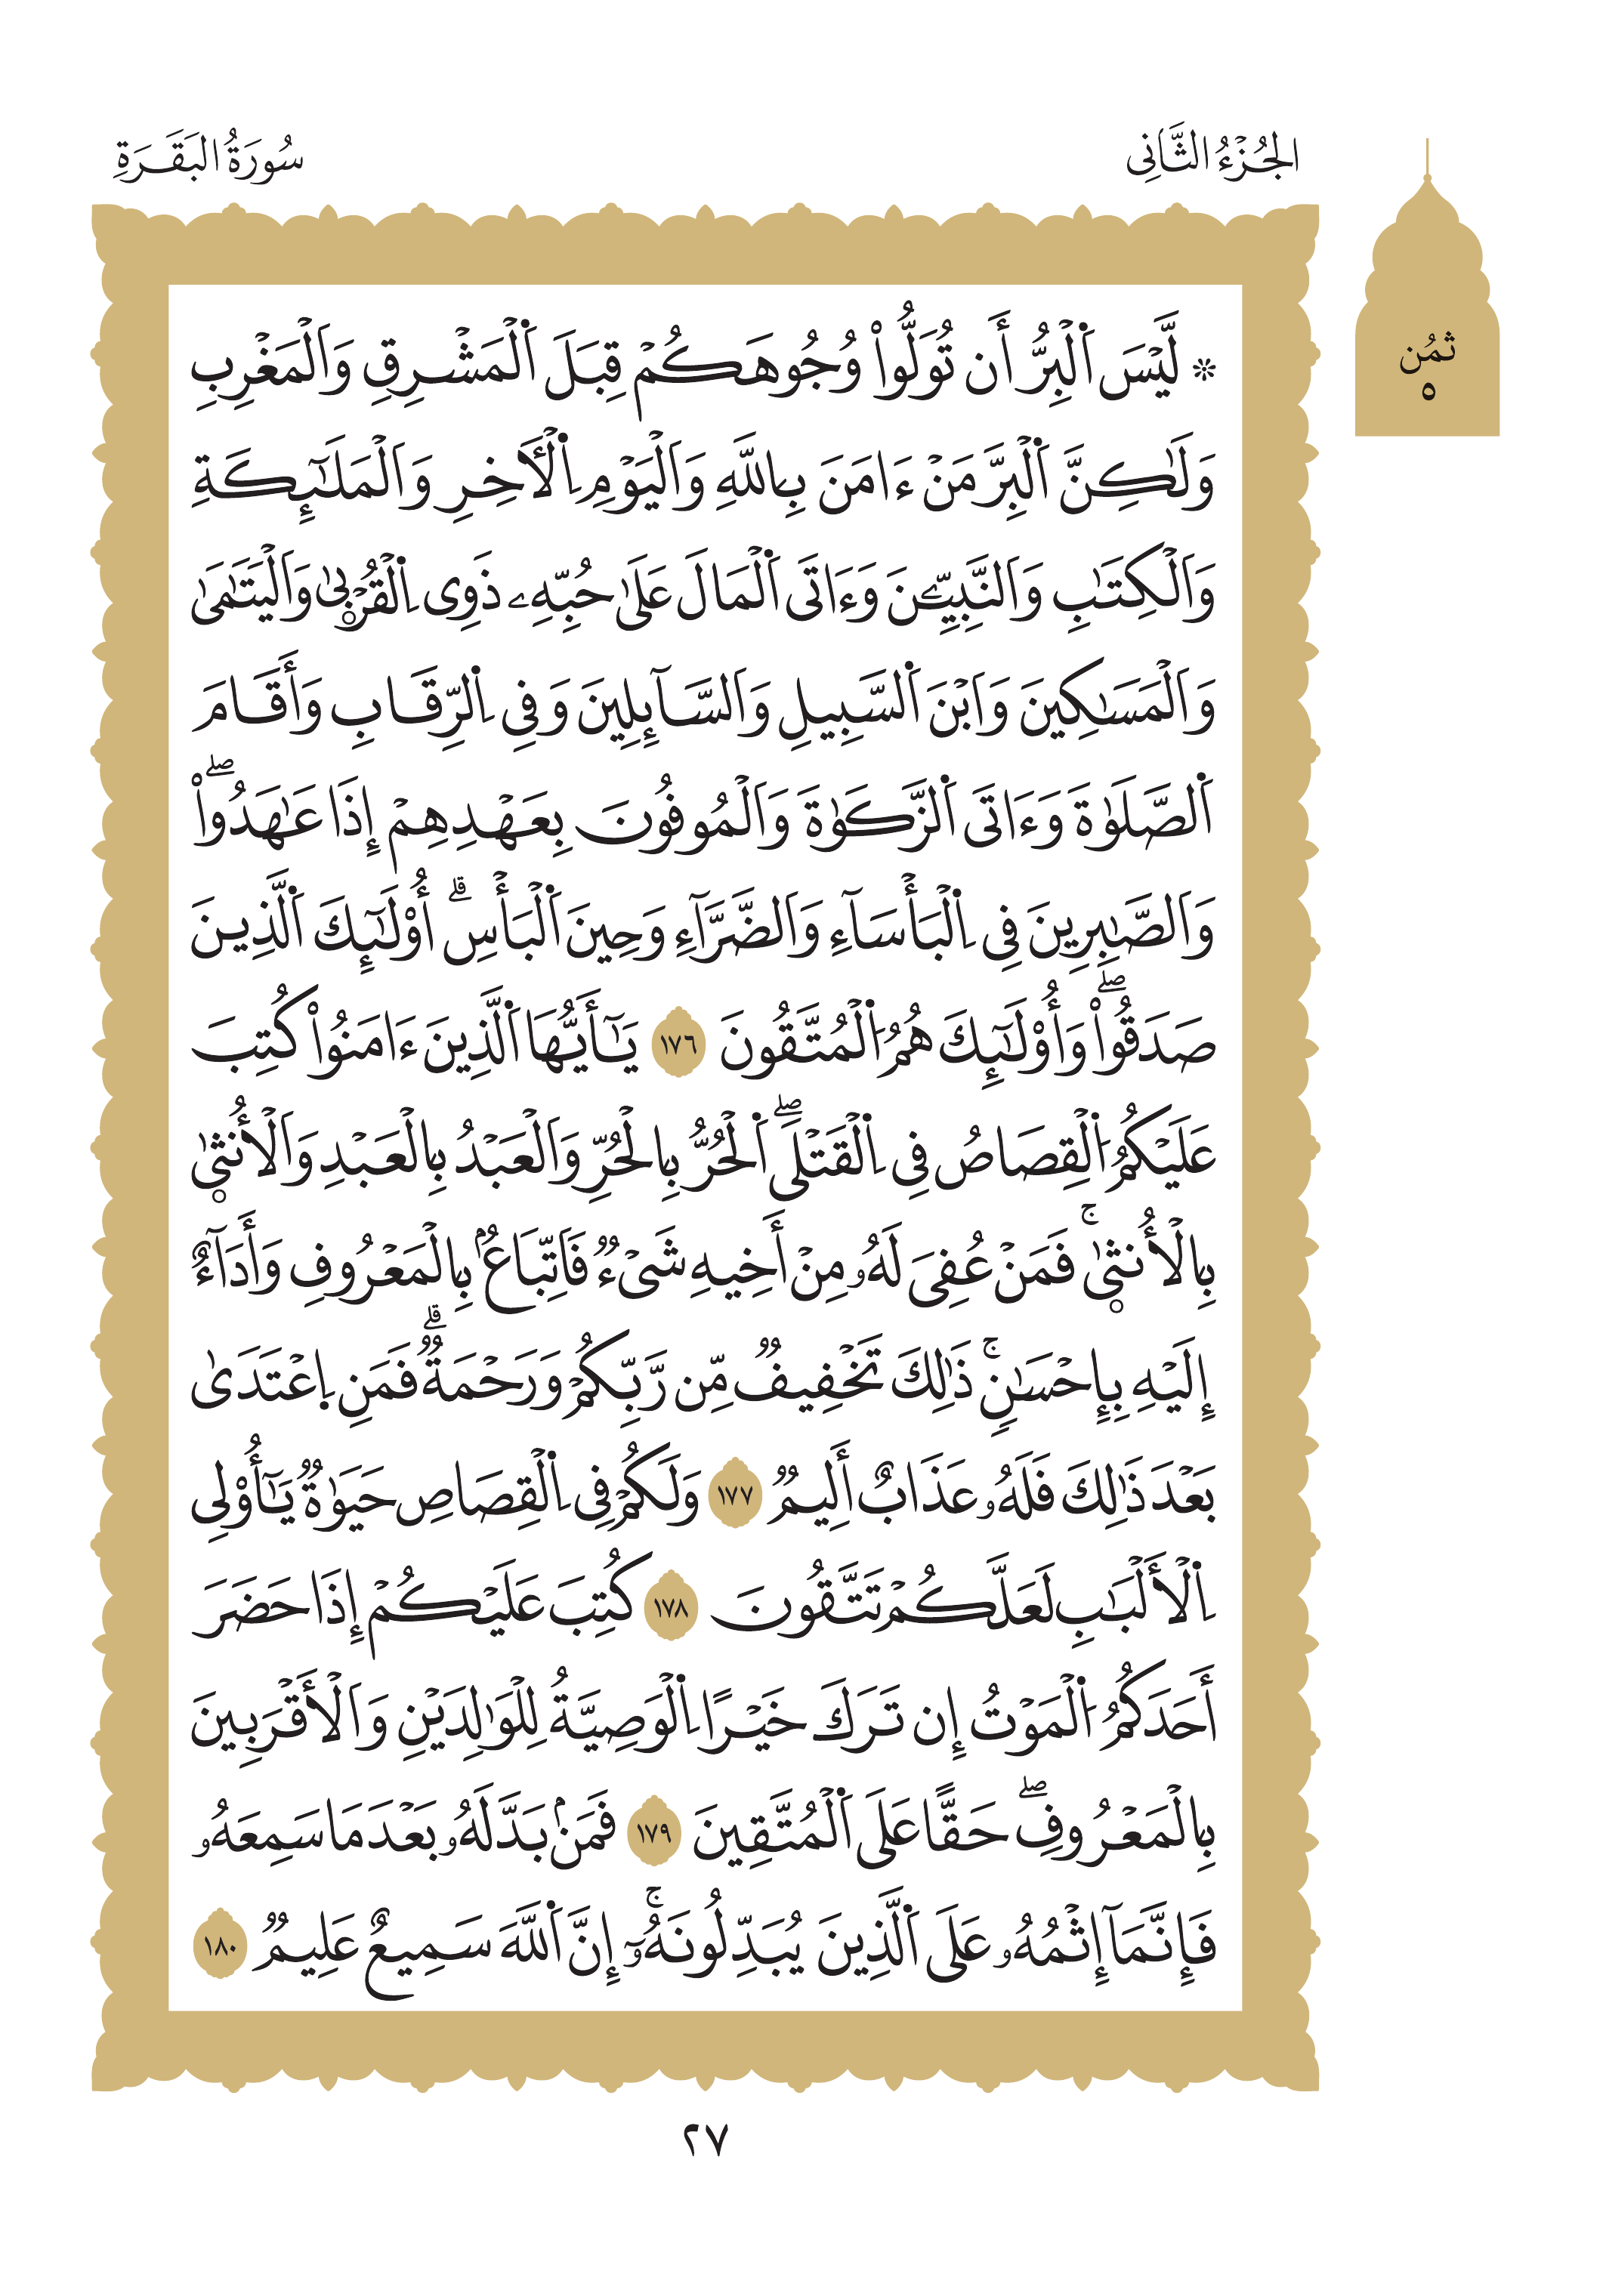 الجُزْءُ الثَّانِي
سُورَةُ البَقَرَةِ
ثُمُن
٥
۞ لَّيْسَ اَ۬لْبِرُّ أَن تُوَلُّواْ وُجُوهَكُمْ قِبَلَ اَ۬لْمَشْرِقِ وَالْمَغْرِبِ
وَلَٰكِنَّ اَ۬لْبِرَّ مَنْ ءَامَنَ بِاللَّهِ وَالْيَوْمِ اِ۬لْأٓخِرِ وَالْمَلَٰٓئِكَةِ
وَالْكِتَٰبِ وَالنَّبِيِّـۧنَ وَءَاتَى اَ۬لْمَالَ عَلَىٰ حُبِّهِۦ ذَوِى اِ۬لْقُرْب۪ىٰ وَالْيَتَٰمَىٰ
وَالْمَسَٰكِينَ وَابْنَ اَ۬لسَّبِيلِ وَالسَّآئِلِينَ وَفِى اِ۬لرِّقَابِ وَأَقَامَ
اَ۬لصَّلَوٰةَ وَءَاتَى اَ۬لزَّكَوٰةَ وَالْمُوفُونَ بِعَهْدِهِمْ إِذَا عَٰهَدُواْۖ
وَالصَّٰبِرِينَ فِى اِ۬لْبَأْسَآءِ وَالضَّرَّآءِ وَحِينَ اَ۬لْبَأْسِۗ أُوْلَٰٓئِكَ اَ۬لَّذِينَ
صَدَقُواْۖ وَأُوْلَٰٓئِكَ هُمُ اُ۬لْمُتَّقُونَ ١٧٦ يَٰٓأَيُّهَا اَ۬لَّذِينَ ءَامَنُواْ كُتِبَ
عَلَيْكُمُ اُ۬لْقِصَاصُ فِى اِ۬لْقَتْلَىۖ اَ۬لْحُرُّ بِالْحُرِّ وَالْعَبْدُ بِالْعَبْدِ وَالْأُنث۪ىٰ
بِالْأُنث۪ىٰۚ فَمَنْ عُفِىَ لَهُۥ مِنْ أَخِيهِ شَىْءٌ فَاتِّبَاعُۢ بِالْمَعْرُوفِ وَأَدَآءٌ
إِلَيْهِ بِإِحْسَٰنٍۚ ذَٰلِكَ تَخْفِيفٌ مِّن رَّبِّكُمْ وَرَحْمَةٌۗ فَمَنِ اِ۪عْتَدَىٰ
بَعْدَ ذَٰلِكَ فَلَهُۥ عَذَابٌ أَلِيمٌ ١٧٧ وَلَكُمْ فِى اِ۬لْقِصَاصِ حَيَوٰةٌ يَٰٓأُوْلِى
اِ۬لْأَلْبَٰبِ لَعَلَّكُمْ تَتَّقُونَ ١٧٨ كُتِبَ عَلَيْكُمْ إِذَا حَضَرَ
أَحَدَكُمُ اُ۬لْمَوْتُ إِن تَرَكَ خَيْرًا اِ۬لْوَصِيَّةُ لِلْوَٰلِدَيْنِ وَالْأَقْرَبِينَ
بِالْمَعْرُوفِۖ حَقًّا عَلَى اَ۬لْمُتَّقِينَ ١٧٩ فَمَنۢ بَدَّلَهُۥ بَعْدَ مَا سَمِعَهُۥ
فَإِنَّمَآ إِثْمُهُۥ عَلَى اَ۬لَّذِينَ يُبَدِّلُونَهُۥٓۚ إِنَّ اَ۬للَّهَ سَمِيعٌ عَلِيمٌ ١٨٠
٢٧